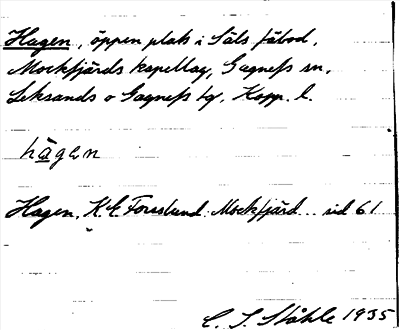 Hagen, öppen plats i Säls fäbod,
Mockfjärds kapellag, Gagnefs sn,
Leksands o Gagnefs tg, Kopp. l.
hāgen
Hagen, K.E. Forslund: Mockfjärd... sid 61
C. I. Ståhle 1935